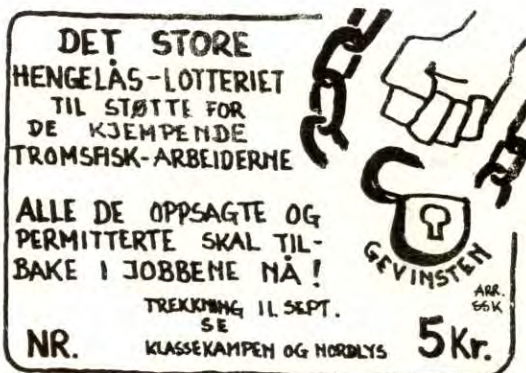 DET STORE
HENGELÅS-LOTTERIET
TIL STØTTE FOR
DE KJEMPENDE
TROMSFISK-ARBEIDERNE
ALLE DE OPPSAGTE OG
PERMITTERTE SKAL TIL-
BAKE I JOBBENE NÅ!
GEVINSTEN
TREKKNING 11. SEPT.
SE
KLASSEKAMPEN OG NORDLYS
ARR.
ESK
NR.
5 Kr.